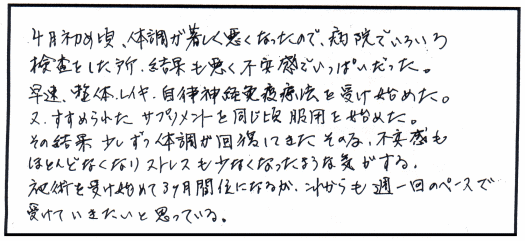 4月初め頃、体調が著しく悪くなったので、病院でいろいろ
検査をした所、結果も悪く不安感でいっぱいだった。
早速、整体、レイキ、自律神経免疫療法を受け始めた。
又、すすめられたサプリメントを同じ頃服用を始めた。
その結果少しずつ体調が回復してきた その為、不安感も
ほとんどなくなりストレスも少なくなったような気がする。
施術を受け始めて3ヶ月間位になるが、これからも週一回のペースで
受けていきたいと思っている。